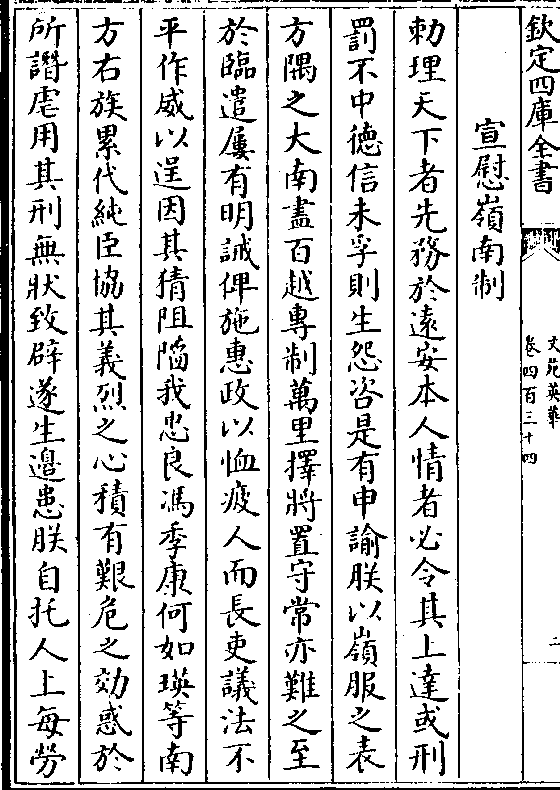 欽定四庫全書
文苑英華
卷四百三十四
二
宣慰嶺南制
勅理天下者先務於遠安本人情者必令其上達或刑
罰不中德信未孚則生怨咨是有申諭朕以嶺服之表
方隅之大南盡百越專制萬里擇將置守常亦難之至
於臨遣屢有明誡俾施惠政以恤疲人而長吏議法不
平作威以逞因其猜阻陷我忠良馮季康何如瑛等南
方右族累代純臣協其義烈之心積有艱危之効惑於
所譖虐用其刑無狀致辟遂生邉患朕自托人上每勞